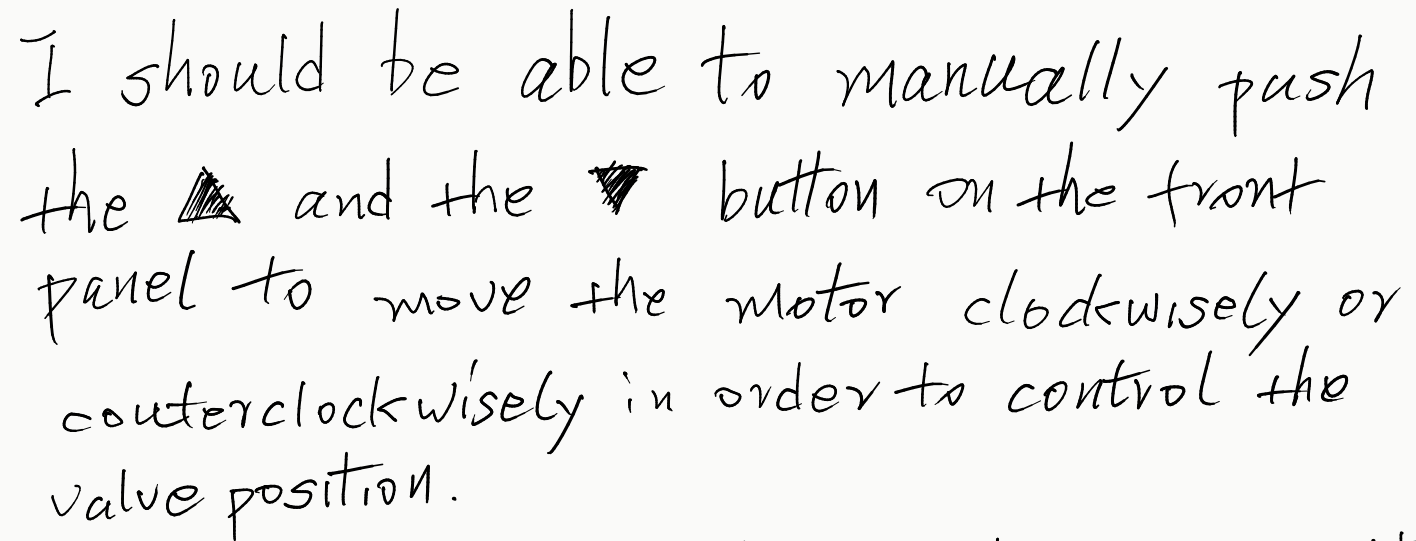 I should be able to manually push
the ▲ and the ▼ button on the front
panel to move the motor clockwisely or
couterclockwisely in order to control the
valve position.